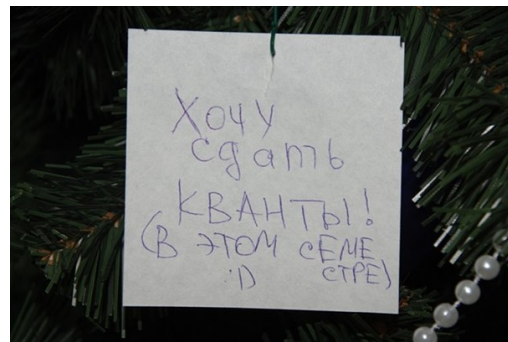 Хочу
сдать
КВАНТЫ!
(В ЭТОМ СЕМЕ
:D СТРЕ)